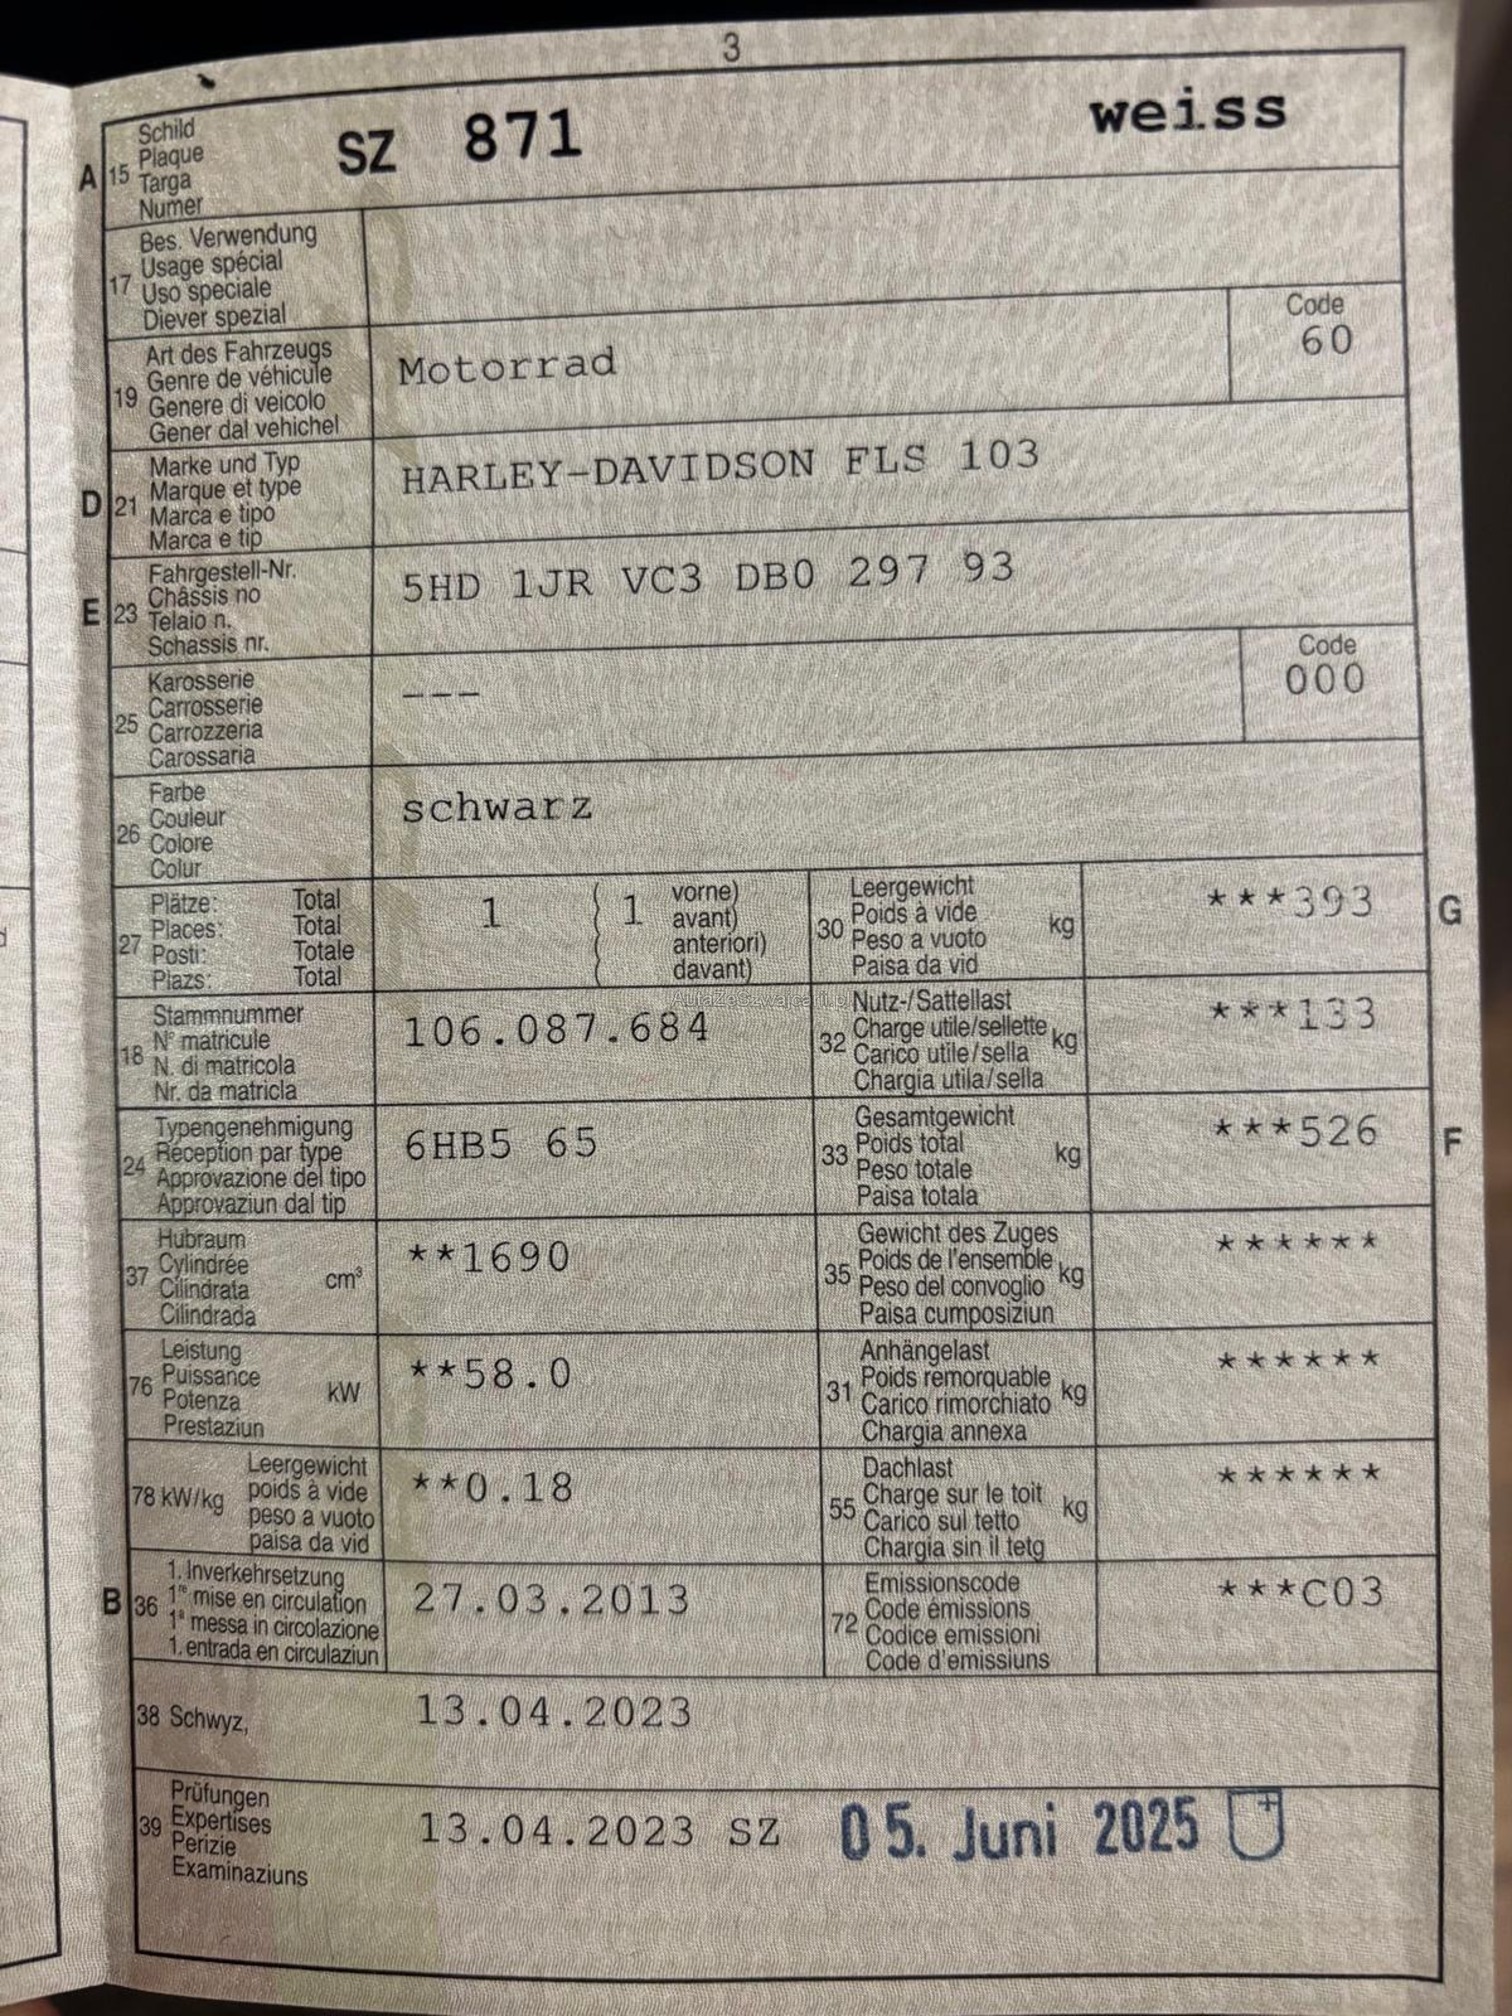 3
A 15 Schild
Plaque
Targa
Numer
SZ 871 weiss
17 Bes. Verwendung
Usage spécial
Uso speciale
Diever spezial
19 Art des Fahrzeugs
Genre de véhicule
Genere di veicolo
Gener dal vehichel
Motorrad
Code
60
D 21 Marke und Typ
Marque et type
Marca e tipo
Marca e tip
HARLEY-DAVIDSON FLS 103
E 23 Fahrgestell-Nr.
Châssis no
Telaio n.
Schassis nr.
5HD 1JR VC3 DB0 297 93
25 Karosserie
Carrosserie
Carrozzeria
Carossaria
---
Code
000
26 Farbe
Couleur
Colore
Colur
schwarz
27 Plätze: Total
Places: Total
Posti: Totale
Plazs: Total
1 ( 1 vorne)
( avant)
( anteriori)
( davant)
30 Leergewicht
Poids à vide
Peso a vuoto
Paisa da vid
kg
***393
G
18 Stammnummer
N° matricule
N. di matricola
Nr. da matricla
106.087.684
32 Nutz-/Sattellast
Charge utile/sellette
Carico utile/sella
Chargia utila/sella
kg
***133
24 Typengenehmigung
Réception par type
Approvazione del tipo
Approvaziun dal tip
6HB5 65
33 Gesamtgewicht
Poids total
Peso totale
Paisa totala
kg
***526
F
37 Hubraum
Cylindrée
Cilindrata
Cilindrada
cm³
**1690
35 Gewicht des Zuges
Poids de l'ensemble
Peso del convoglio
Paisa cumposiziun
kg
******
76 Leistung
Puissance
Potenza
Prestaziun
kW
**58.0
31 Anhängelast
Poids remorquable
Carico rimorchiato
Chargia annexa
kg
******
78 kW/kg Leergewicht
poids à vide
peso a vuoto
paisa da vid
**0.18
55 Dachlast
Charge sur le toit
Carico sul tetto
Chargia sin il tetg
kg
******
B 36 1. Inverkehrsetzung
1re mise en circulation
1a messa in circolazione
1. entrada en circulaziun
27.03.2013
72 Emissionscode
Code émissions
Codice emissioni
Code d'emissiuns
***C03
38 Schwyz,
13.04.2023
39 Prüfungen
Expertises
Perizie
Examinaziuns
13.04.2023 SZ 05. Juni 2025